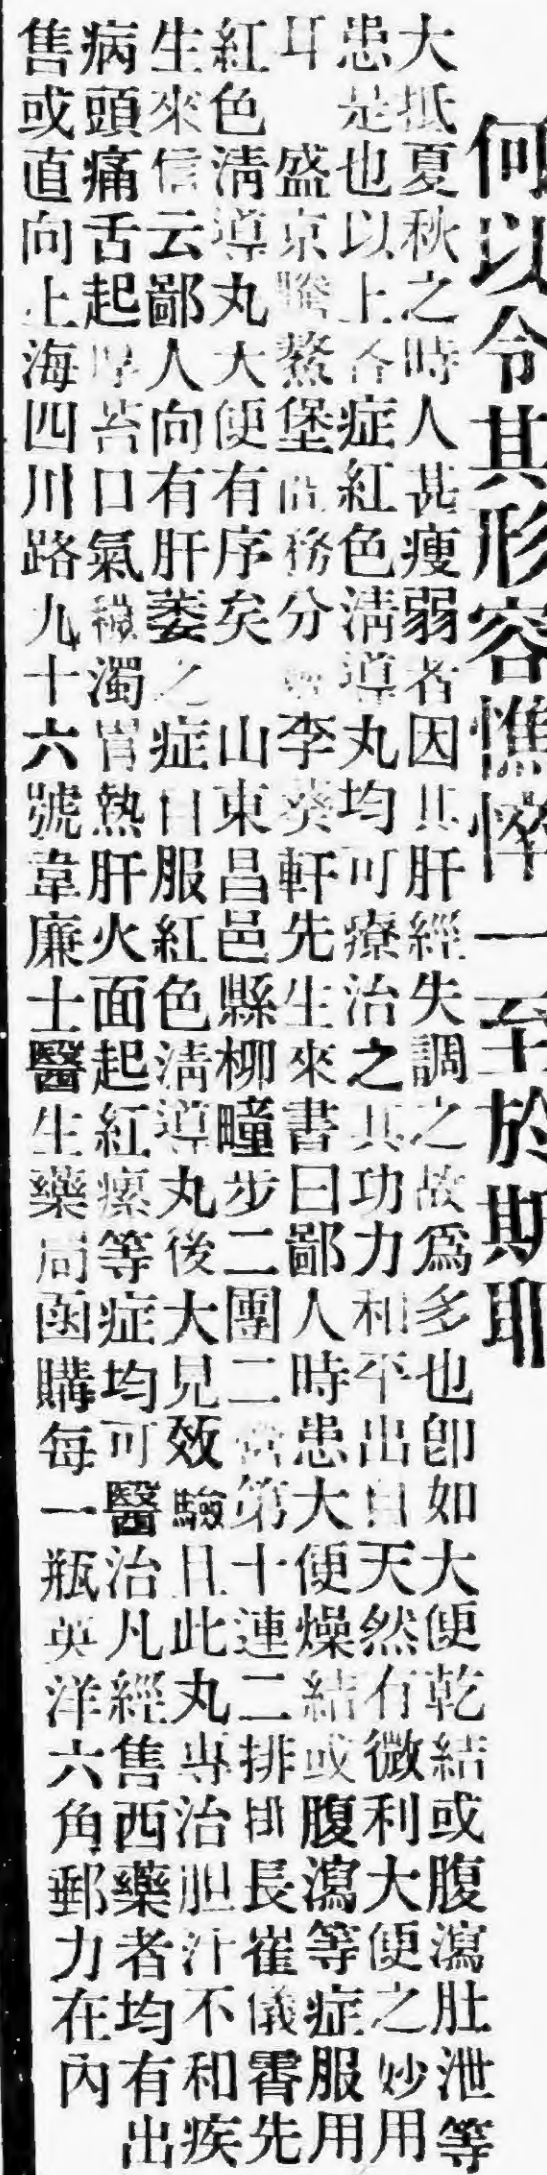 何以令其形容憔悴一至於斯耶
大抵夏秋之時人甚瘦弱者因其肝經失調之故爲多也卽如大便乾結或腹瀉肚泄等
患是也以上各症紅色淸導丸均可療治之其功力和平出自天然有微利大便之妙用
耳 盛京 鰲堡 務分 李葵軒先生來書曰鄙人時患大便燥結或腹瀉等症服用
紅色淸導丸大便有序矣 山東昌邑縣柳疃步二團二營第十連二排排長崔儀霫先
生來信云鄙人向有肝萎之症自服紅色淸導丸後大見效驗且此丸專治胆汁不和疾
病頭痛舌起厚苔口氣穢濁胃熱肝火面起紅瘰等症均可醫治凡經售西藥者均有出
售或直向上海四川路九十六號韋廉士醫生藥局函購每一瓶英洋六角郵力在內